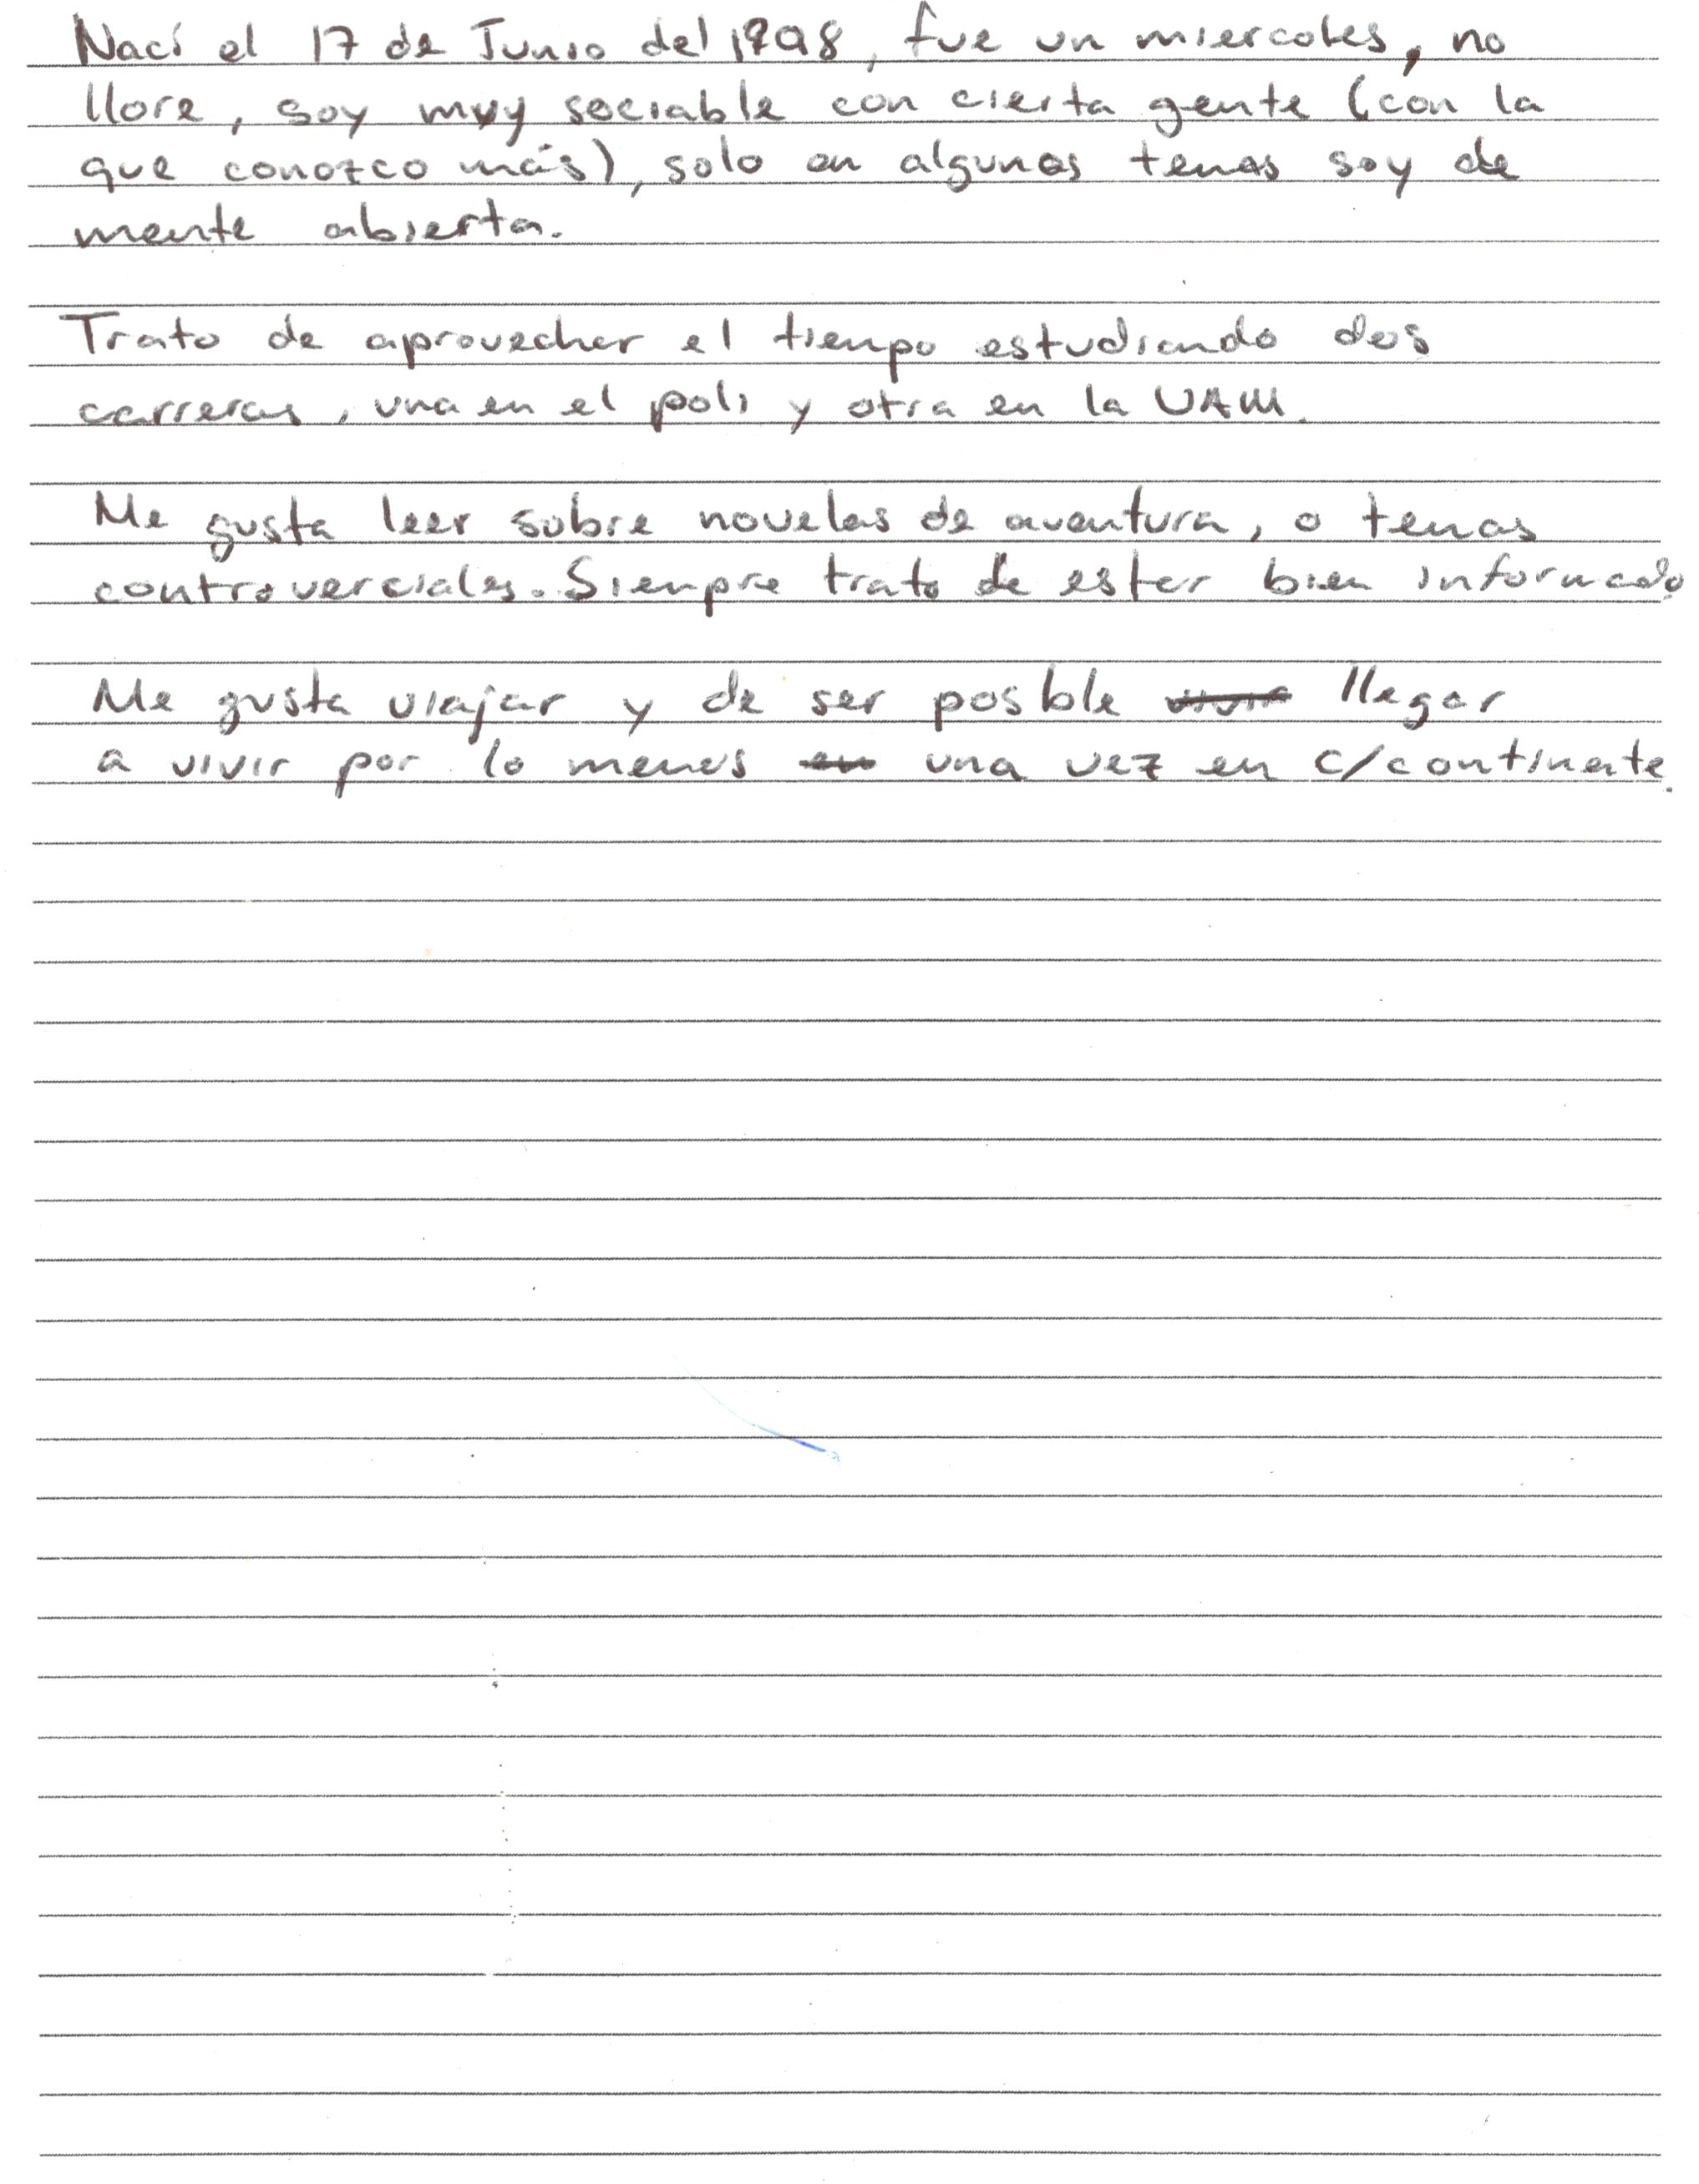 Nací el 17 de Junio del 1998, fue un miercoles, no
llore, soy muy sociable con cierta gente (con la
que conozco más), solo en algunos temas soy de
mente abierta.
Trato de aprovechar el tiempo estudiando dos
carreras, una en el poli y otra en la UAM.
Me gusta leer sobre novelas de aventura, o temas
controverciales. Siempre trato de estar bien informado
Me gusta viajar y de ser posble llegar
a vivir por lo menos una vez en c/continente.